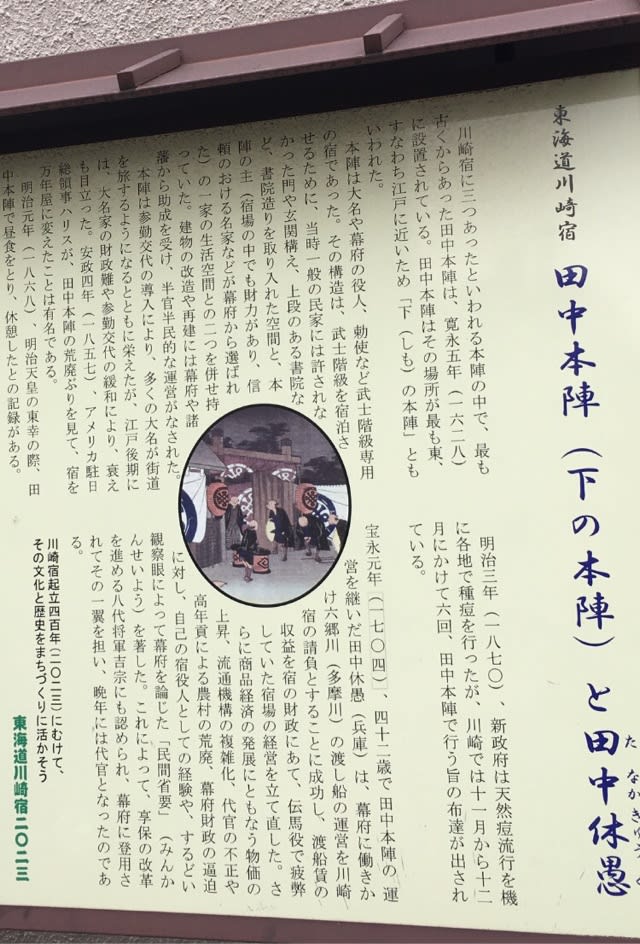 東海道川崎宿
田中本陣（下の本陣）と田中休愚
た なかきゅうぐ
川崎宿に三つあったといわれる本陣の中で、最も
古くからあった田中本陣は、寛永五年（一六二八）
に設置されている。田中本陣はその場所が最も東、
すなわち江戸に近いため「下（しも）の本陣」とも
いわれた。
本陣は大名や幕府の役人、勅使など武士階級専用
の宿であった。その構造は、武士階級を宿泊さ
せるために、当時一般の民家には許されな
かった門や玄関構え、上段のある書院な
ど、書院造りを取り入れた空間と、本
陣の主（宿場の中でも財力があり、信
頼のおける名家などが幕府から選ばれ
た）の一家の生活空間との二つを併せ持
っていた。建物の改造や再建には幕府や諸
藩から助成を受け、半官半民的な運営がなされた。
本陣は参勤交代の導入により、多くの大名が街道
を旅するようになるとともに栄えたが、江戸後期に
は、大名家の財政難や参勤交代の緩和により、衰え
も目立った。安政四年（一八五七）、アメリカ駐日
総領事ハリスが、田中本陣の荒廃ぶりを見て、宿を
万年屋に変えたことは有名である。
明治元年（一八六八）、明治天皇の東幸の際、田
中本陣で昼食をとり、休憩したとの記録がある。
明治三年（一八七〇）、新政府は天然痘流行を機
に各地で種痘を行ったが、川崎では十一月から十二
月にかけて六回、田中本陣で行う旨の布達が出され
ている。
宝永元年（一七〇四）、四十二歳で田中本陣の運
営を継いだ田中休愚（兵庫）は、幕府に働きか
け六郷川（多摩川）の渡し船の運営を川崎
宿の請負とすることに成功し、渡船賃の
収益を宿の財政にあて、伝馬役で疲弊
していた宿場の経営を立て直した。さ
らに商品経済の発展にともなう物価の
上昇、流通機構の複雑化、代官の不正や
高年貢による農村の荒廃、幕府財政の逼迫
に対し、自己の宿役人としての経験や、するどい
観察眼によって幕府を論じた「民間省要」（みんか
んせいよう）を著した。これによって、享保の改革
を進める八代将軍吉宗にも認められ、幕府に登用さ
れてその一翼を担い、晩年には代官となったのであ
る。
川崎宿起立四百年（二〇二三）にむけて、
その文化と歴史をまちづくりに活かそう
東海道川崎宿二〇二三